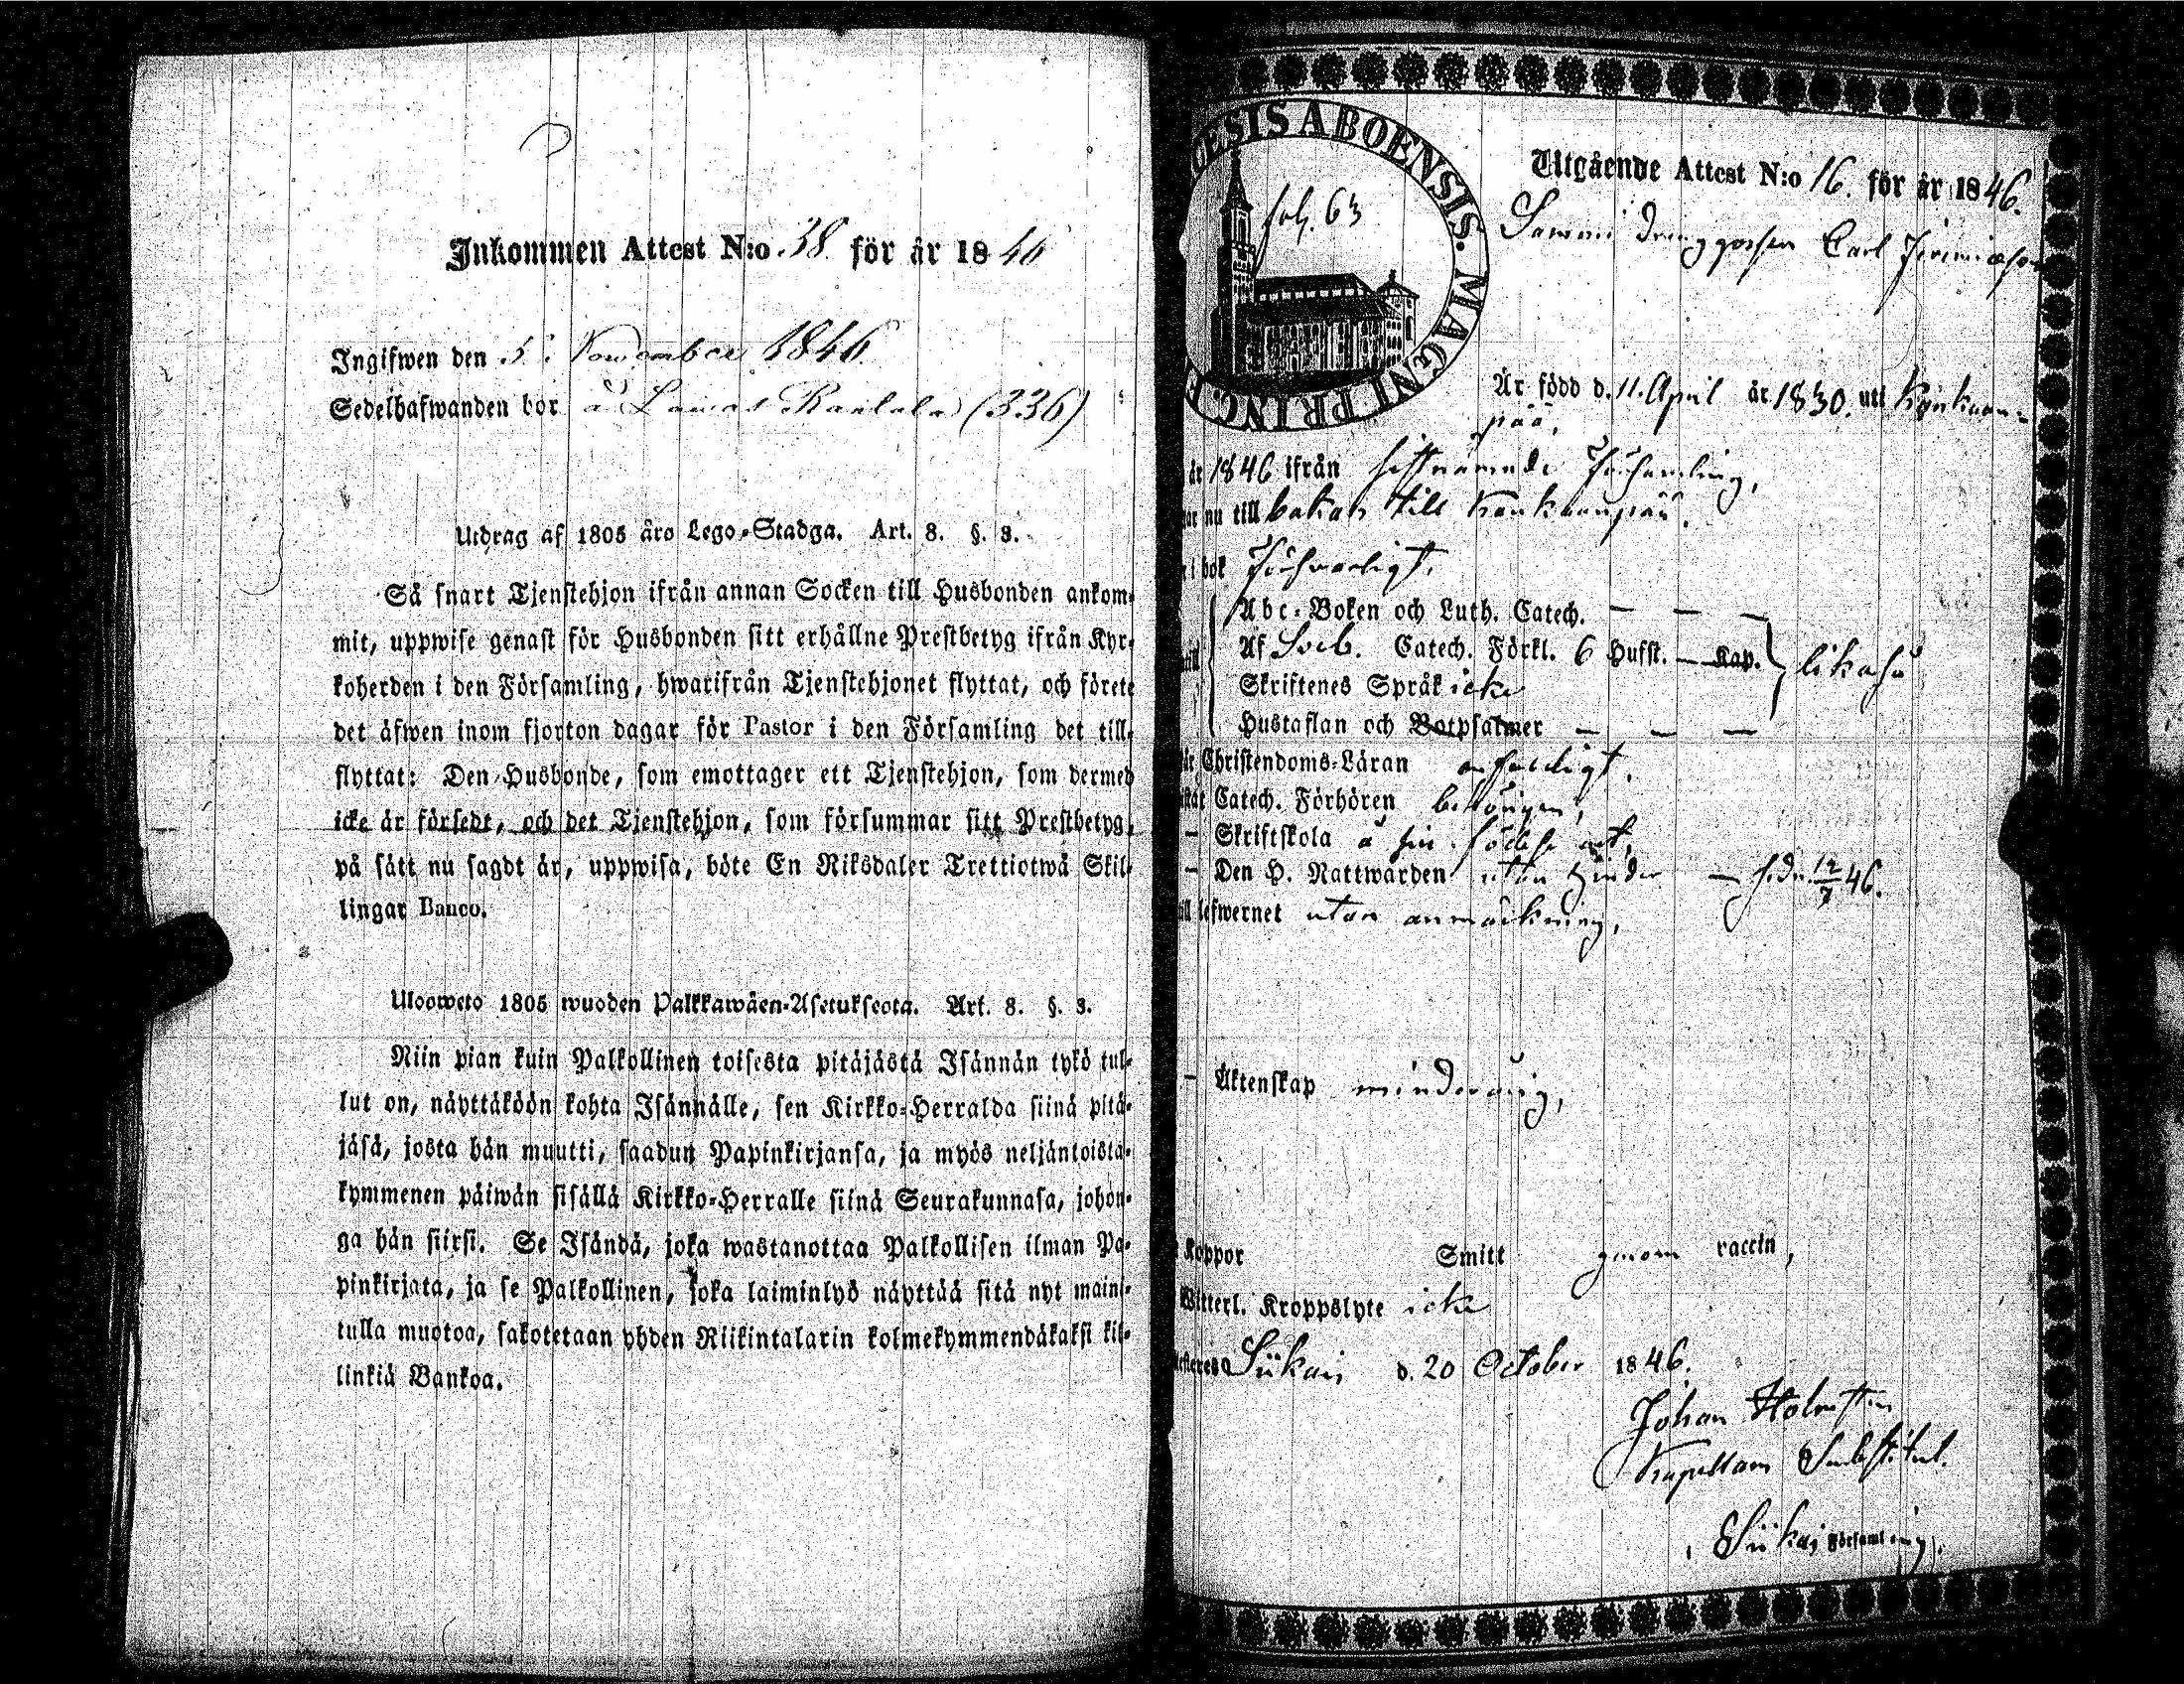 Inkommen Attest N:o 38. för år 1846
Ingifwen den 5. November 1846
Sedelhafwanden bor å Lamas Raulala (336)
Utdrag af 1805 års Lego-Stadga. Art. 8. §. 3.
Så snart Tjenstehjon ifrån annan Socken till Husbonden ankom-
mit, uppwise genast för Husbonden sitt erhållne Prestbetyg ifrån Kyr-
koherden i den Församling, hwarifrån Tjenstehjonet flyttat, och förete
det äfwen inom fjorton dagar för Pastor i den Församling det till-
flyttat: Den Husbonde, som emottager ett Tjenstehjon, som dermed
icke är försedt, och det Tjenstehjon, som försummar sitt Prestbetyg,
på sätt nu sagdt är, uppwisa, böte En Riksdaler Trettiotwå Skil-
lingar Banco.
Ulosweto 1805 wuoden Palkkawäen-Asetuksesta. Art. 8. §. 3.
Niin pian kuin Palkollinen toisesta pitäjästä Isännän tykö tul-
lut on, näyttäköön kohta Isännälle, sen Kirkko-Herralda siinä pitä-
jäsä, josta hän muutti, saadun Papinkirjansa, ja myös neljäntoista-
kymmenen päiwän sisällä Kirkko-Herralle siinä Seurakunnasa, johon-
ga hän siirsi. Se Isändä, joka wastanottaa Palkollisen ilman Pa-
pinkirjata, ja se Palkollinen, joka laiminlyö näyttää sitä nyt maini-
tulla muotoa, sakotetaan yhden Riikintalarin kolmekymmendäkaksi kil-
linkiä Bankoa.
ESIS ABOENSIS. MAGNI PRINC. F
fol. 63
Utgående Attest N:o 16. för år 1846.
Drenggossen Carl Jeremiasson
Är född d. 11. April år 1830. uti Kankaan-
pää,
år 1846 ifrån sistnämnde Församling,
nu till bakas till Kankaanpää.
i bok Försvarligt.
Abc-Boken och Luth. Catech. — — —
Af Sveb. Catech. Förkl. 6 Hufst. — Kap. likaså
Skriftenes Språk icke
Hustaflan och Botpsalmer — — —
Christendoms-Läran enfaldigt.
Catech. Förhören behörigen,
— Skriftskola å sin födelse ort,
— Den H. Nattwarden utan hinder — s.dn. 12/7 46.
lefwernet utan anmärkning,
— Äktenskap minderårig,
Koppor Smitt genom vaccin,
Witterl. Kroppslyte icke
Siikais d. 20 October 1846.
Johan Holmsten
Kapellans Substitut.
Siikais Församling.